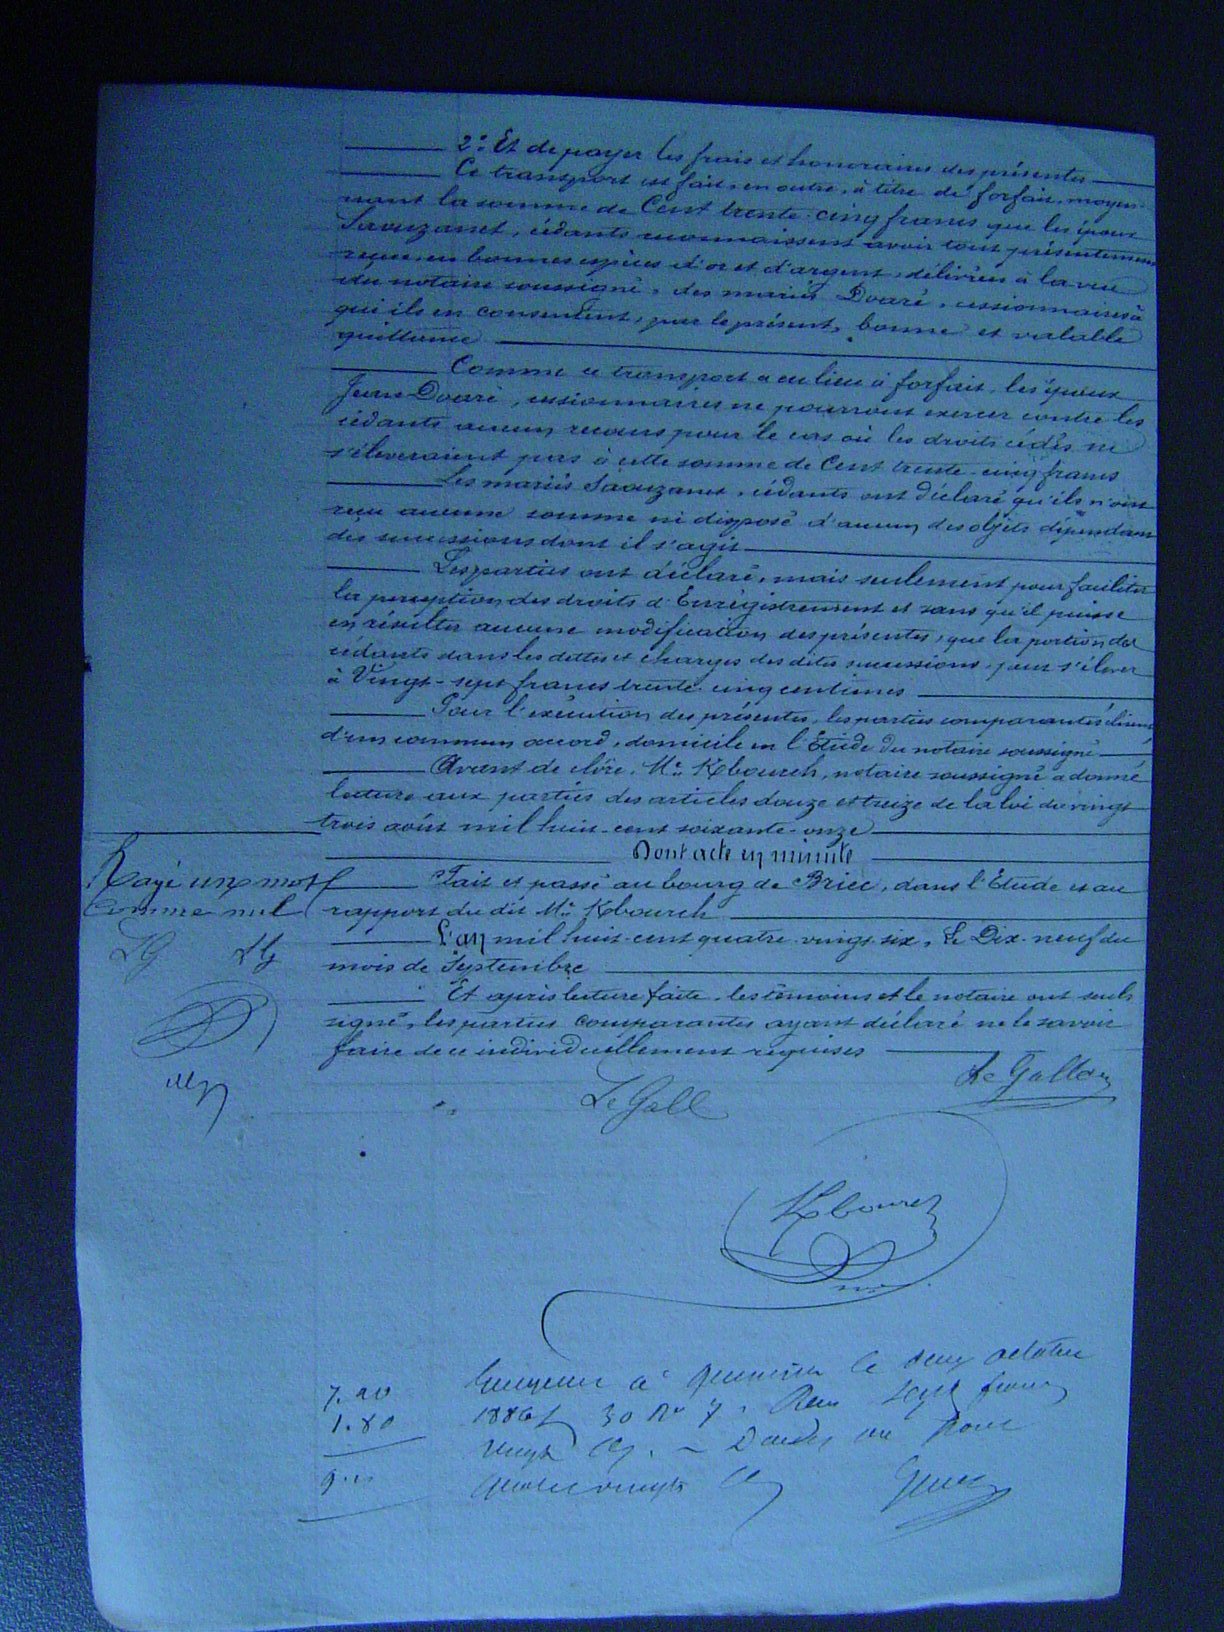 2° Et de payer les frais et honoraires des présentes
Ce transport est fait, en outre, à titre de forfait, moyen-
nant la somme de Cent trente-cinq francs que les époux
Saouzanet, cédants reconnaissent avoir tout présentement
reçue, en bonnes espèces d'or et d'argent, délivrées à la vue
du notaire soussigné, des mariés Doaré, cessionnaires à
qui ils en consentent, par le présent, bonne et valable
quittance
Comme ce transport a eu lieu à forfait, les époux
Jean Doaré, cessionnaires ne pourront exercer contre les
cédants aucun recours pour le cas où les droits cédés ne
s'éleveraient pas à cette somme de Cent trente-cinq francs
Les mariés Saouzanet, cédants ont déclaré qu'ils n'ont
reçu aucune somme ni disposé d'aucun des objets dépendant
des successions dont il s'agit
Les parties ont déclaré, mais seulement pour faciliter
la perception des droits d'Enregistrement et sans qu'il puisse
en résulter aucune modification des présentes, que la portion des
cédants dans les dettes et charges des dites successions, peut s'élever
à Vingt-sept francs trente-cinq centimes
Pour l'exécution des présentes, les parties comparantes élisent
d'un commun accord, domicile en l'Etude du notaire soussigné
Avant de clore, Me Kbourch, notaire soussigné a donné
lecture aux parties des articles douze et treize de la loi du vingt
trois août mil huit-cent soixante-onze
Dont acte en minute
Rayé un mot
comme nul
LG LG
Fait et passé au bourg de Briec, dans l'Etude et au
rapport du dit Me Kbourch
L'an mil huit-cent quatre-vingt-six, Le Dix-neuf du
mois de Septembre
Et après lecture faite, les témoins et le notaire ont seuls
signé, les parties comparantes ayant déclaré ne le savoir
faire de ce individuellement requises
Le Gall
Le Gallou
Kbourch
7.20
1.80
9.00
à Quimper le deux octobre
1886 f 30 No 7. Reçu sept francs
vingt c. Decimes un franc
quatre vingts c